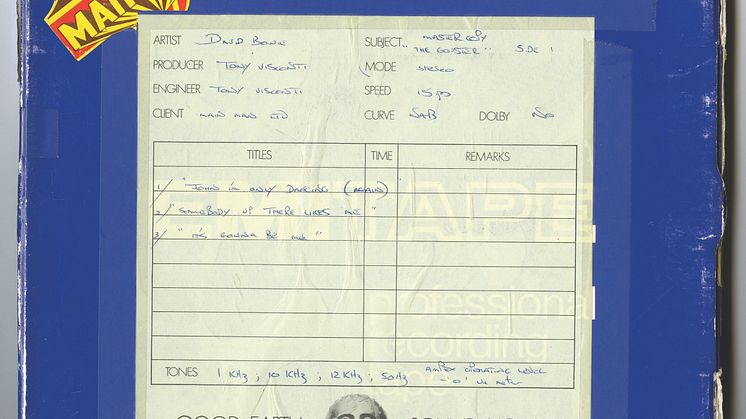 MAIN
ARTIST David Bowie SUBJECT MASTER COPY
"THE GOUSTER" SIDE 1
PRODUCER TONY VISCONTI MODE STEREO
ENGINEER TONY VISCONTI SPEED 15 IPS
CLIENT MAIN MAN LTD CURVE NAB DOLBY NO
TITLES TIME REMARKS
1/ "JOHN I'M ONLY DANCING (AGAIN)"
2/ "SOMEBODY UP THERE LIKES ME"
3/ "IT'S GONNA BE ME"
AMPEX
professional
recording
tape
TONES 1 KHz ; 10 KHz ; 12 KHz ; 50Hz AMPEX OPERATING LEVEL
= '0' VU
GOOD EARTH